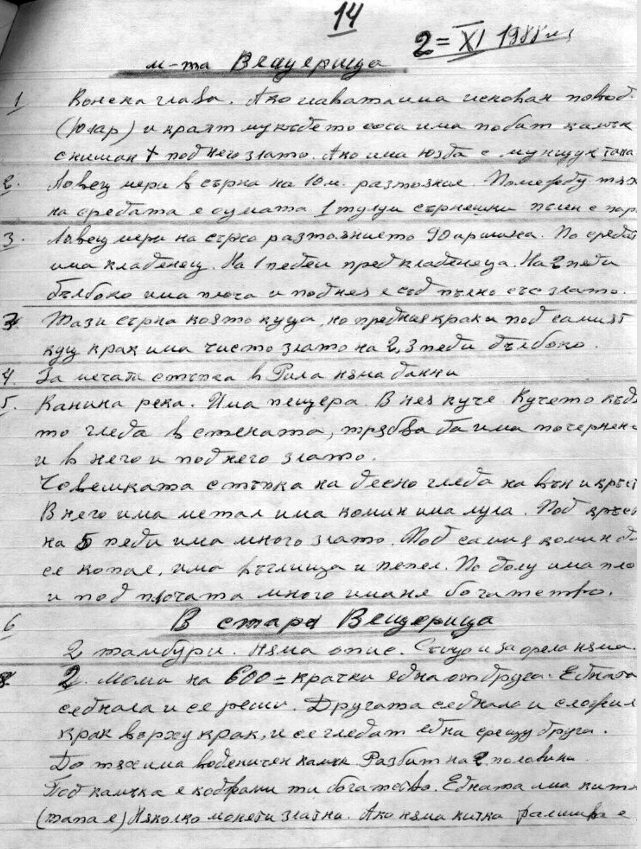 14
2 = XI 1988
м-та Вещерица
1 Конска глава. Ако главата има исковак повод
(Юлар) и краят му където соса има побит камък
с нишан + под него злато. Ако има юзда с мунщук така
2. Ловец мери в сърна на 10 м. разтояние. Помежду тях
на средата е сумата 1 тулум сърнешки пълен с пар
3. Ловец мери на сърна разтоянието 90 аршина. По средат
има кладенец. На 1 педя пред кладенеца. На 2 педи
бълбоко има плоча и под нея е съд пълно със злато.
3. Тази сърна която куца, но предния крак и под самият
куц крак има чисто злато на 2,3 педи дълбоко.
4. За печата стъпка в Рила няма данни
5. Канина река. Има пещера. В нея куче Кучето къде
то гледа в стената, трябва да има почернен
и в него и под него злато.
Човешката стъпка на десно гледа на вън и кръст
В него има метал има комин има лула. Под кръст
на 5 педи има много злато. Под самия комин да
се копае, има въглища и пепел. По долу има пло
и под плочата много иманя богатство.
6 В стара Вещерица
2 тамбури. няма опис. Също и за орела няма.
2. Моми на 600 = крачки една от друга. Едната
седнала и се реши. Другата седнала и сложил
крак върху крак, и се гледат една срещу друга.
До тях има воденичен камък Разбит на 2 половини.
Под камъка е кобрани ти богатство. Едната има китк
(тапа е) Няколко монети златни. Ако няма китка фалшива е